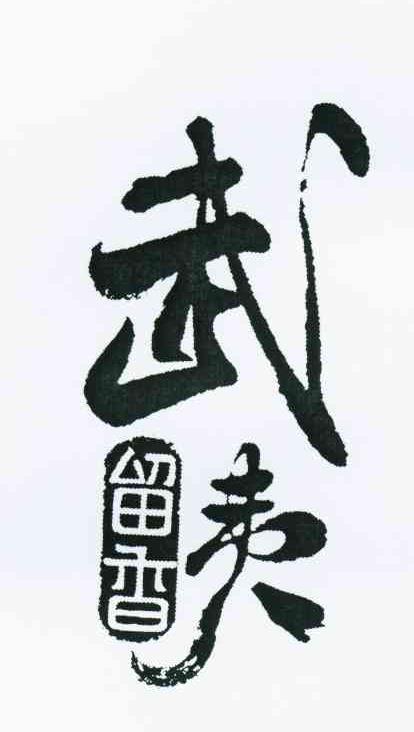 武夷
留香